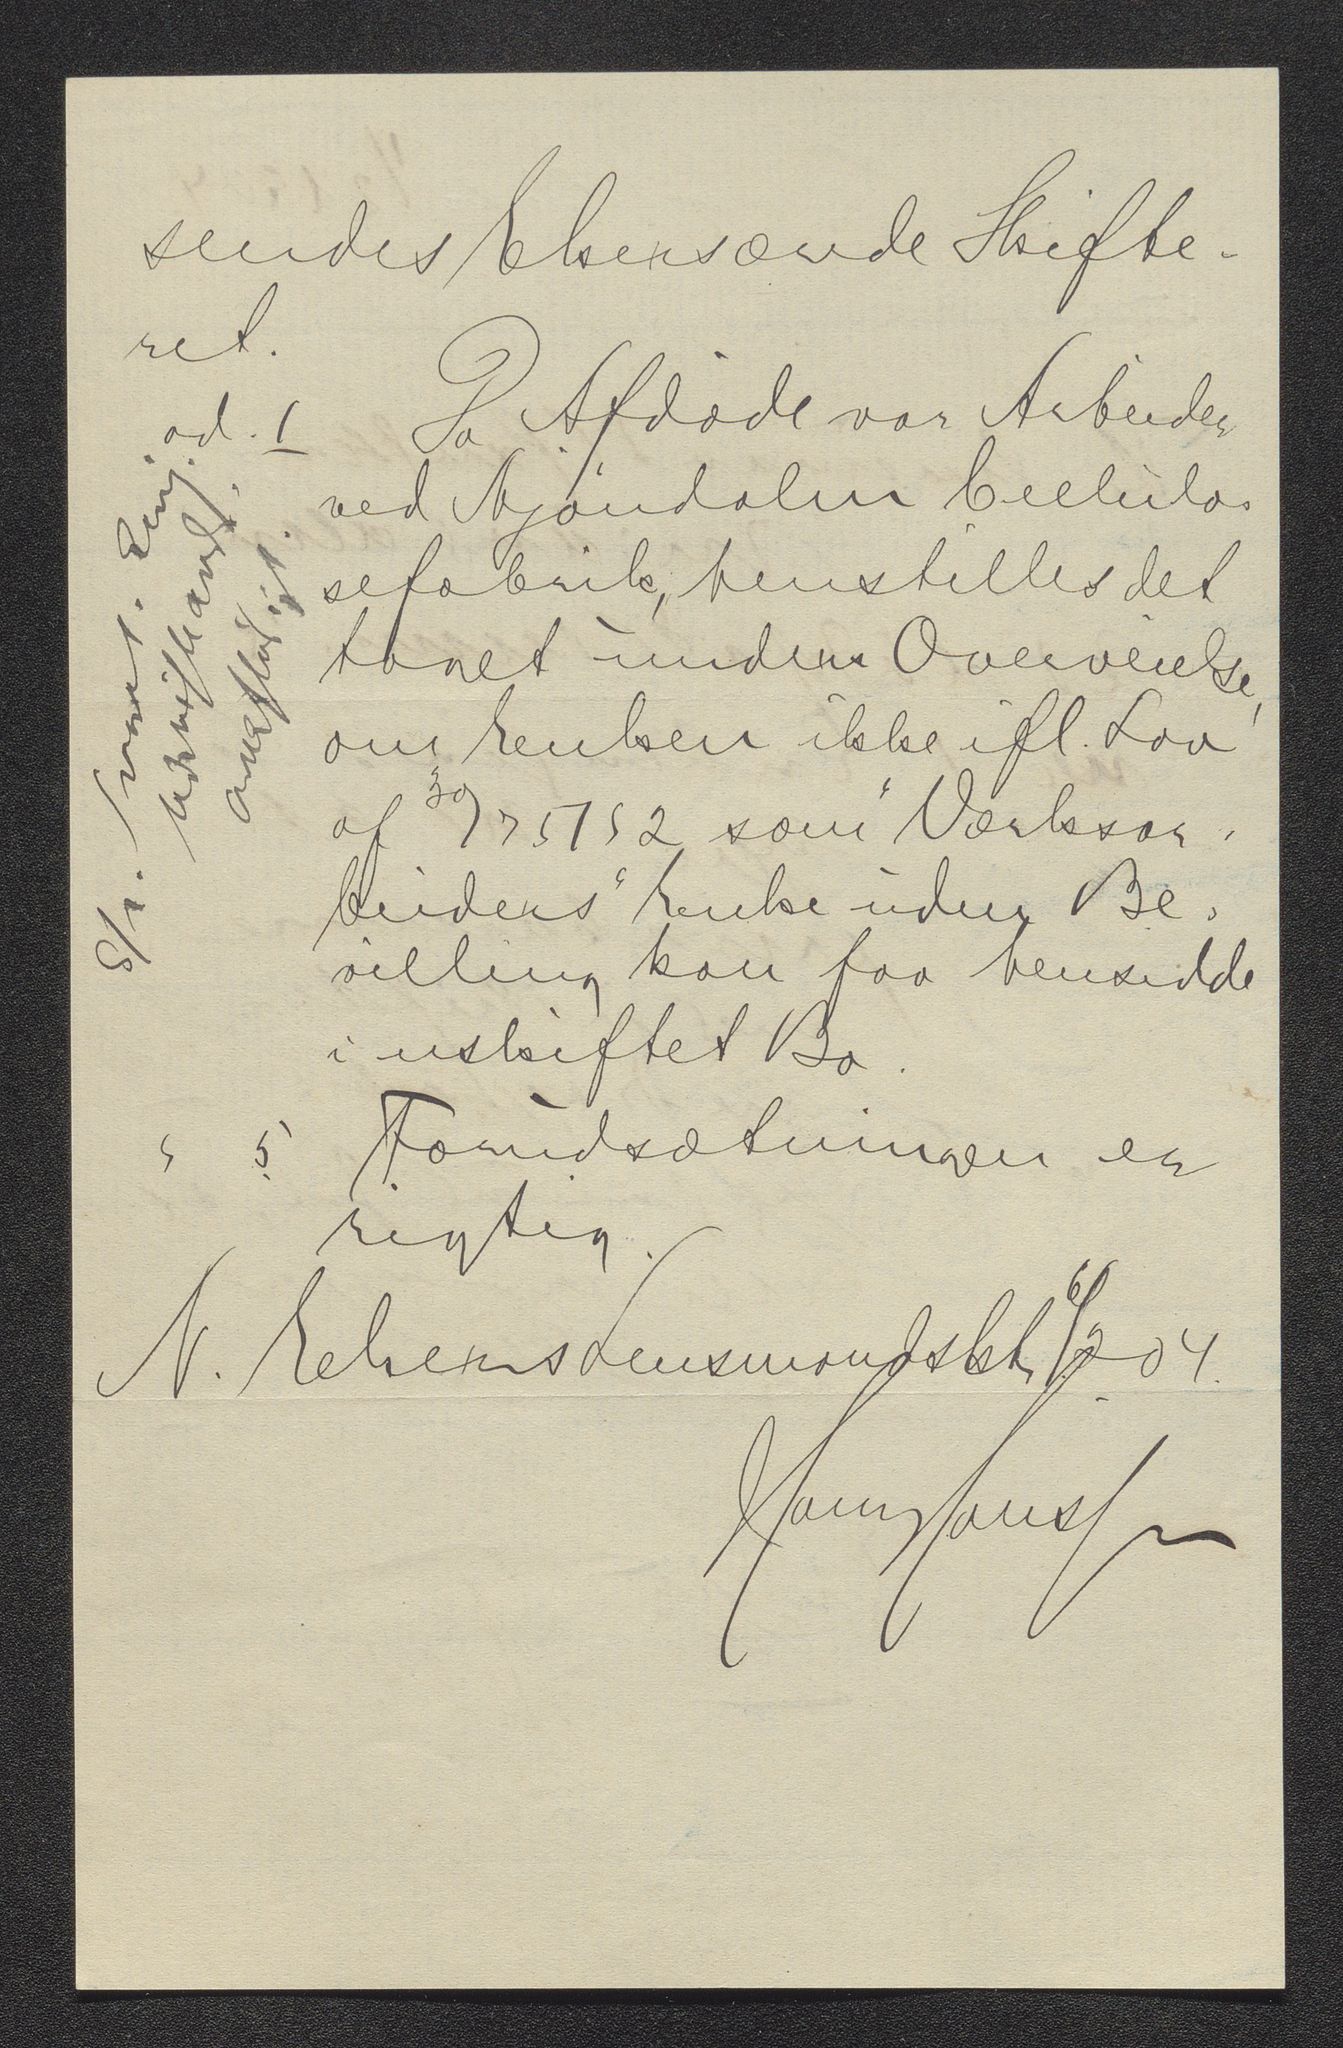 sendes Ekersørende Skifte-
ret.
ad. 1 Da Afdøde var Arbeider
ved Mjøndalen Cellulo-
sefabrik, henstilles det
taget under Overveielse,
om Enken ikke ifl. Lov
af 30/7 51 § 2 som "Værksar-
beiders" Enke uden Be-
villing kan faa hensidde
i uskiftet Bo.
" 5) Forudsætningen er
rigtig.
N. Ekers Lensmandsktr 6/2 04.
Hans Hansen
8/2. Svart. Enj.
udskiftland